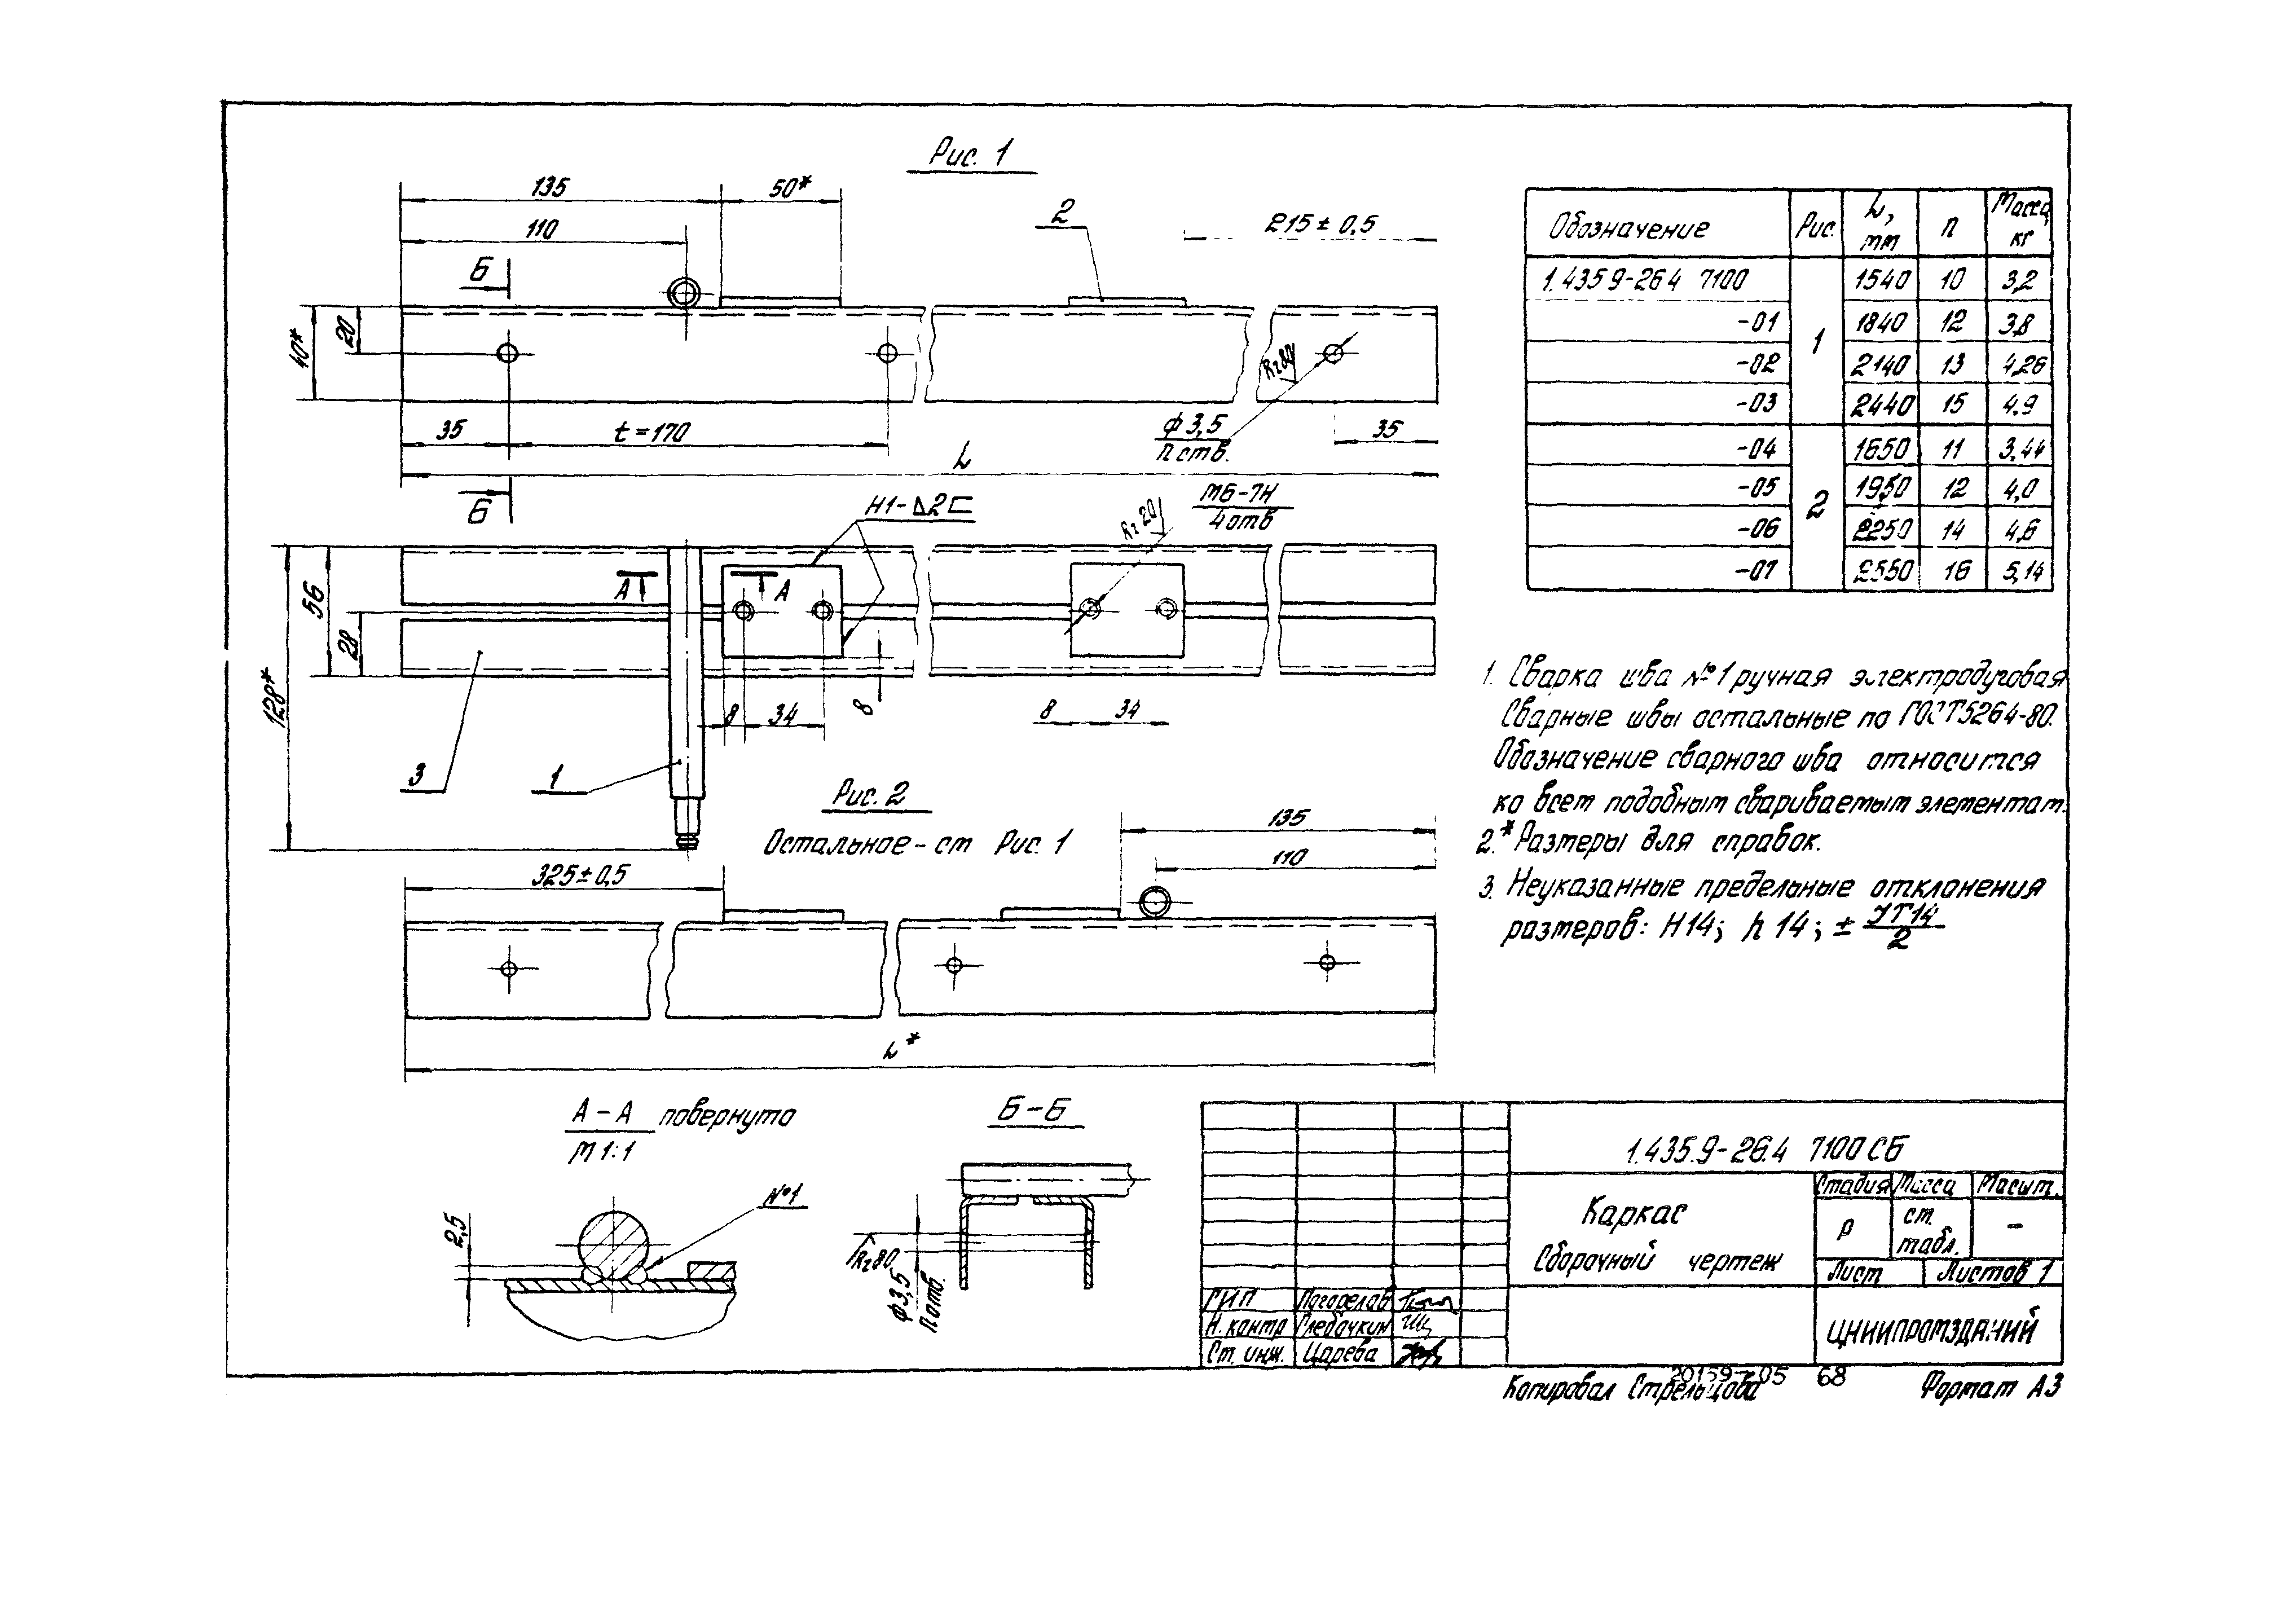 Рис. 1
135
50*
110
2
215 ± 0,5
Б
40*
20
Rz80
35
t = 170
ф 3,5
n отв.
35
L
Б
Н1-Δ2⊏
Rz 20
М6-7Н
4 отв
А
А
128*
56
28
8
34
8
8
34
3
1
Рис. 2
Остальное - см Рис. 1
325 ± 0,5
135
110
L*
А - А повернуто
М 1:1
№1
2,5
Б - Б
Rz80
ф 3,5
n отв.
Обозначение Рис. L, мм n Масса, кг
1.435 9-26 4 7100 1 1540 10 3,2
-01 1840 12 3,8
-02 2140 13 4,26
-03 2440 15 4.9
-04 2 1650 11 3,44
-05 1950 12 4,0
-06 2250 14 4,6
-07 2550 16 5,14
1. Сварка шва №1 ручная электродуговая
Сварные швы остальные по ГОСТ 5264-80.
Обозначение сварного шва относится
ко всем подобным свариваемым элементам.
2.* Размеры для справок.
3. Неуказанные предельные отклонения
размеров: Н14; h 14; ± JT14/2
1.435.9-26.4 7100 СБ
Каркас
Сборочный чертеж
Стадия Масса Масшт.
Р см. табл. -
Лист Листов 1
ЦНИИПРОМЗДАНИЙ
ГИП Погорелов
Н. контр Глебочкин
Ст. инж. Царева
20159-05 68
Копировал Стрельцова Формат А3